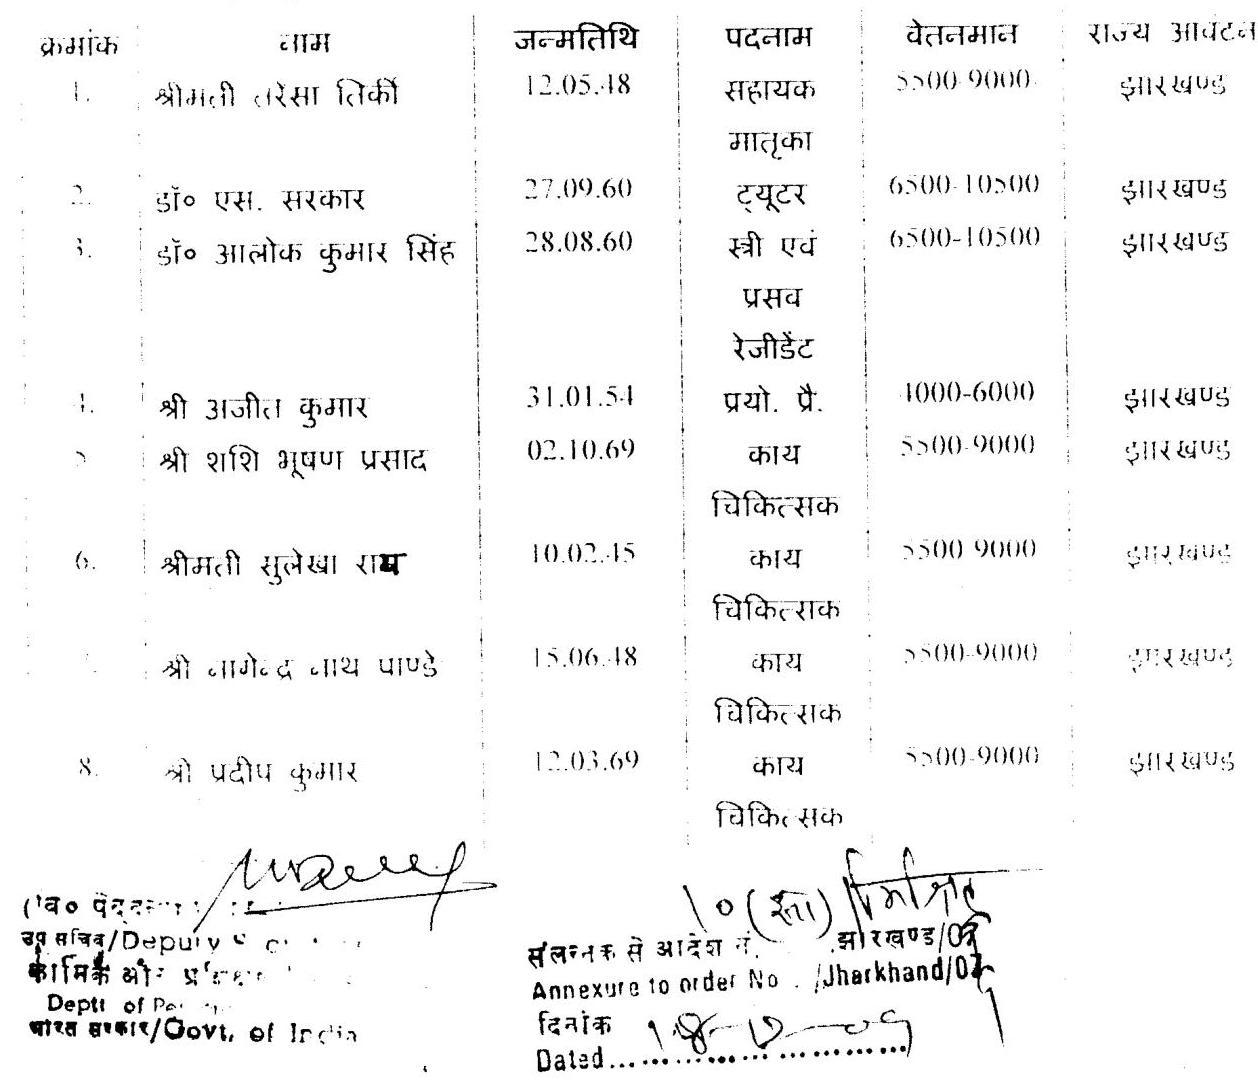 क्रमांक नाम जन्मतिथि पदनाम वेतनमान राज्य आवंटन
1. श्रीमती तरेसा तिर्की 12.05.48 सहायक 5500-9000 झारखण्ड
मातृका
2. डॉ० एस. सरकार 27.09.60 ट्यूटर 6500-10500 झारखण्ड
3. डॉ० आलोक कुमार सिंह 28.08.60 स्त्री एवं 6500-10500 झारखण्ड
प्रसव
रेजीडेंट
4. श्री अजीत कुमार 31.01.54 प्रयो. प्रै. 4000-6000 झारखण्ड
5 श्री शशि भूषण प्रसाद 02.10.69 काय 5500-9000 झारखण्ड
चिकित्सक
6. श्रीमती सुलेखा राय 10.02.45 काय 5500-9000 झारखण्ड
चिकित्सक
श्री नागेन्द्र नाथ पाण्डे 15.06.48 काय 5500-9000 झारखण्ड
चिकित्सक
8. श्री प्रदीप कुमार 12.03.69 काय 5500-9000 झारखण्ड
चिकित्सक
उप सचिव/Deputy
कार्मिक और
Deptt of
भारत सरकार/Govt. of India
संलग्नक से आदेश नं. झारखण्ड/
Annexure to order No /Jharkhand/
दिनांक
Dated